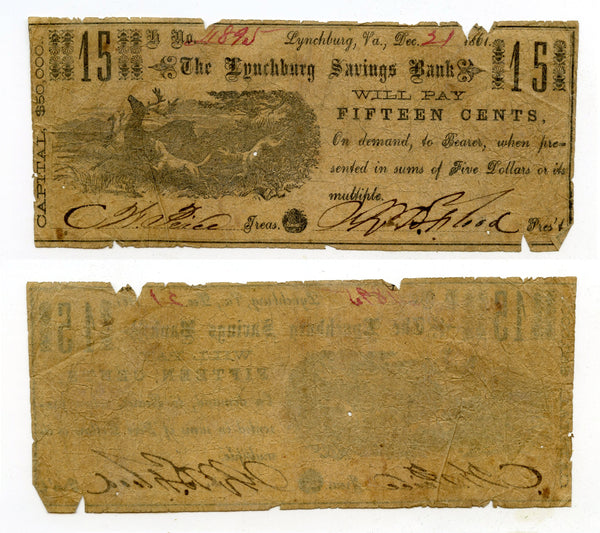 CAPITAL, $50,000.
15 No. 4895 Lynchburg, Va., Dec. 21 1861. 15
The Lynchburg Savings Bank
WILL PAY
FIFTEEN CENTS,
On demand, to Bearer, when pre-
sented in sums of Five Dollars or its
multiple.
Treas. Pres't